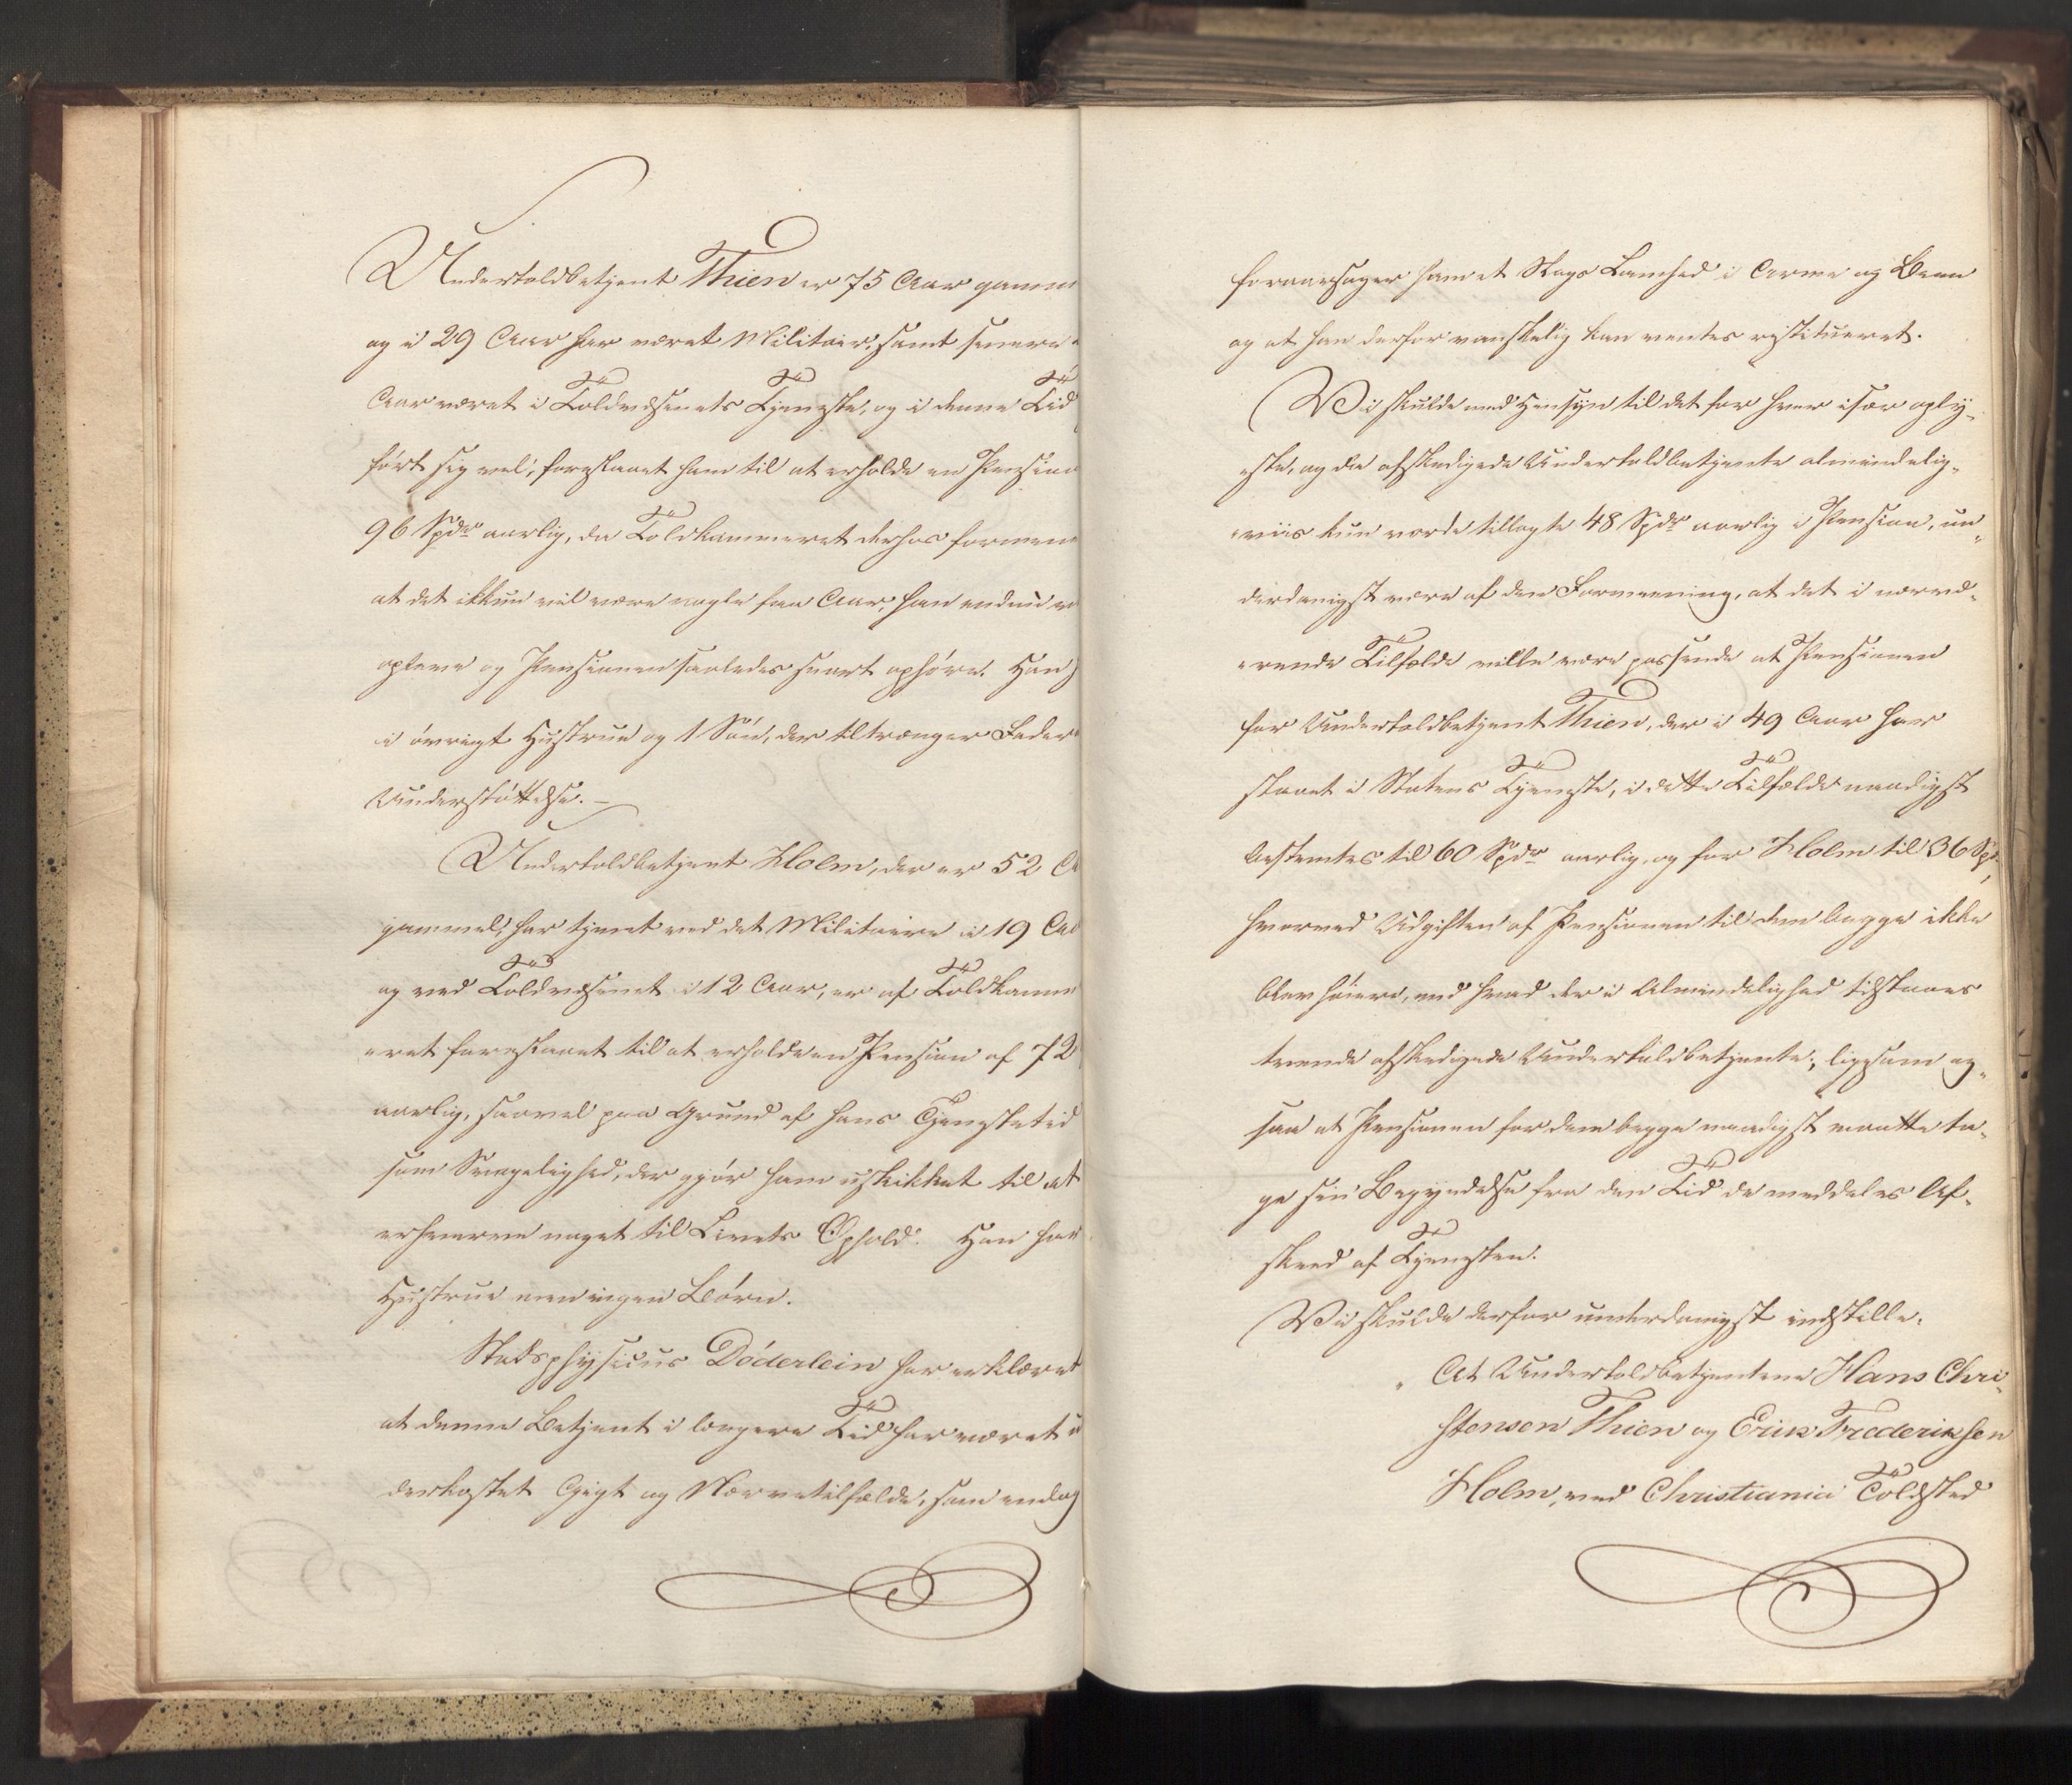 Undertoldbetjent Thien er 75 Aar gamm
og i 29 Aar har været Militair, samt senere
Aar været i Toldvæsenets Tjeneste, og i denne Tid
ført sig vel, foreslaaet ham til at erholde en Pension
96 Spdr aarlig, da Toldkammeret derhos formen
at det ikkun vil være nogle faa Aar, han endnu
opleve og Pensionen saaledes snart ophøre. Han
i øvrigt Hustrue og 1 Søn, der tiltrænger Fader
Understøttelse.
Undertoldbetjent Holm, der er 52 A
gammel, har tjent ved det Militaire i 19 Aa
og ved Toldvæsenet i 12 Aar, er af Toldkamme
eret foreslaaet til at erholde en Pension af 72
aarlig, saavel paa Grund af hans Tjenestetid
som Svagelighed, der gjør ham uskikket til at
erhverve noget til Livets Ophold. Han har
Hustrue men ingen Børn.
Stadsphysicus Döderlein har erklæret
at denne Betjent i længere Tid har været u
derkastet Gigt og Nervetilfælde, som endog
foraarsager ham et Slags Lamhed i Arme og Been
og at han derfor vanskelig kan ventes restitueret.
Vi skulde med Hensyn til det for hver især oply-
ste, og da afskedigede Undertoldbetjente almindelig-
viis kun vorde tillagte 48 Spdr aarlig i Pension, un-
derdanigst være af den Formeening, at det i nærvæ-
rende Tilfælde ville være passende at Pensionen
for Undertoldbetjent Thien, der i 49 Aar har
staaet i Statens Tjeneste, i dette Tilfælde naadigst
bestemtes til 60 Spdr aarlig, og for Holm til 36 Spd,
hvorved Udgiften af Pensionen til dem begge ikke
blev høiere, end hvad der i Almindelighed tilstaaes
tvende afskedigede Undertoldbetjente; ligesom og-
saa at Pensionen for dem begge naadigst maatte ta-
ge sin Begyndelse fra den Tid de meddeles Af-
skeed af Tjenesten.
Vi skulde derfor underdanigst indstille:
„At Undertoldbetjentene Hans Chri-
stensen Thien og Erik Frederiksen
Holm, ved Christiania Toldsted